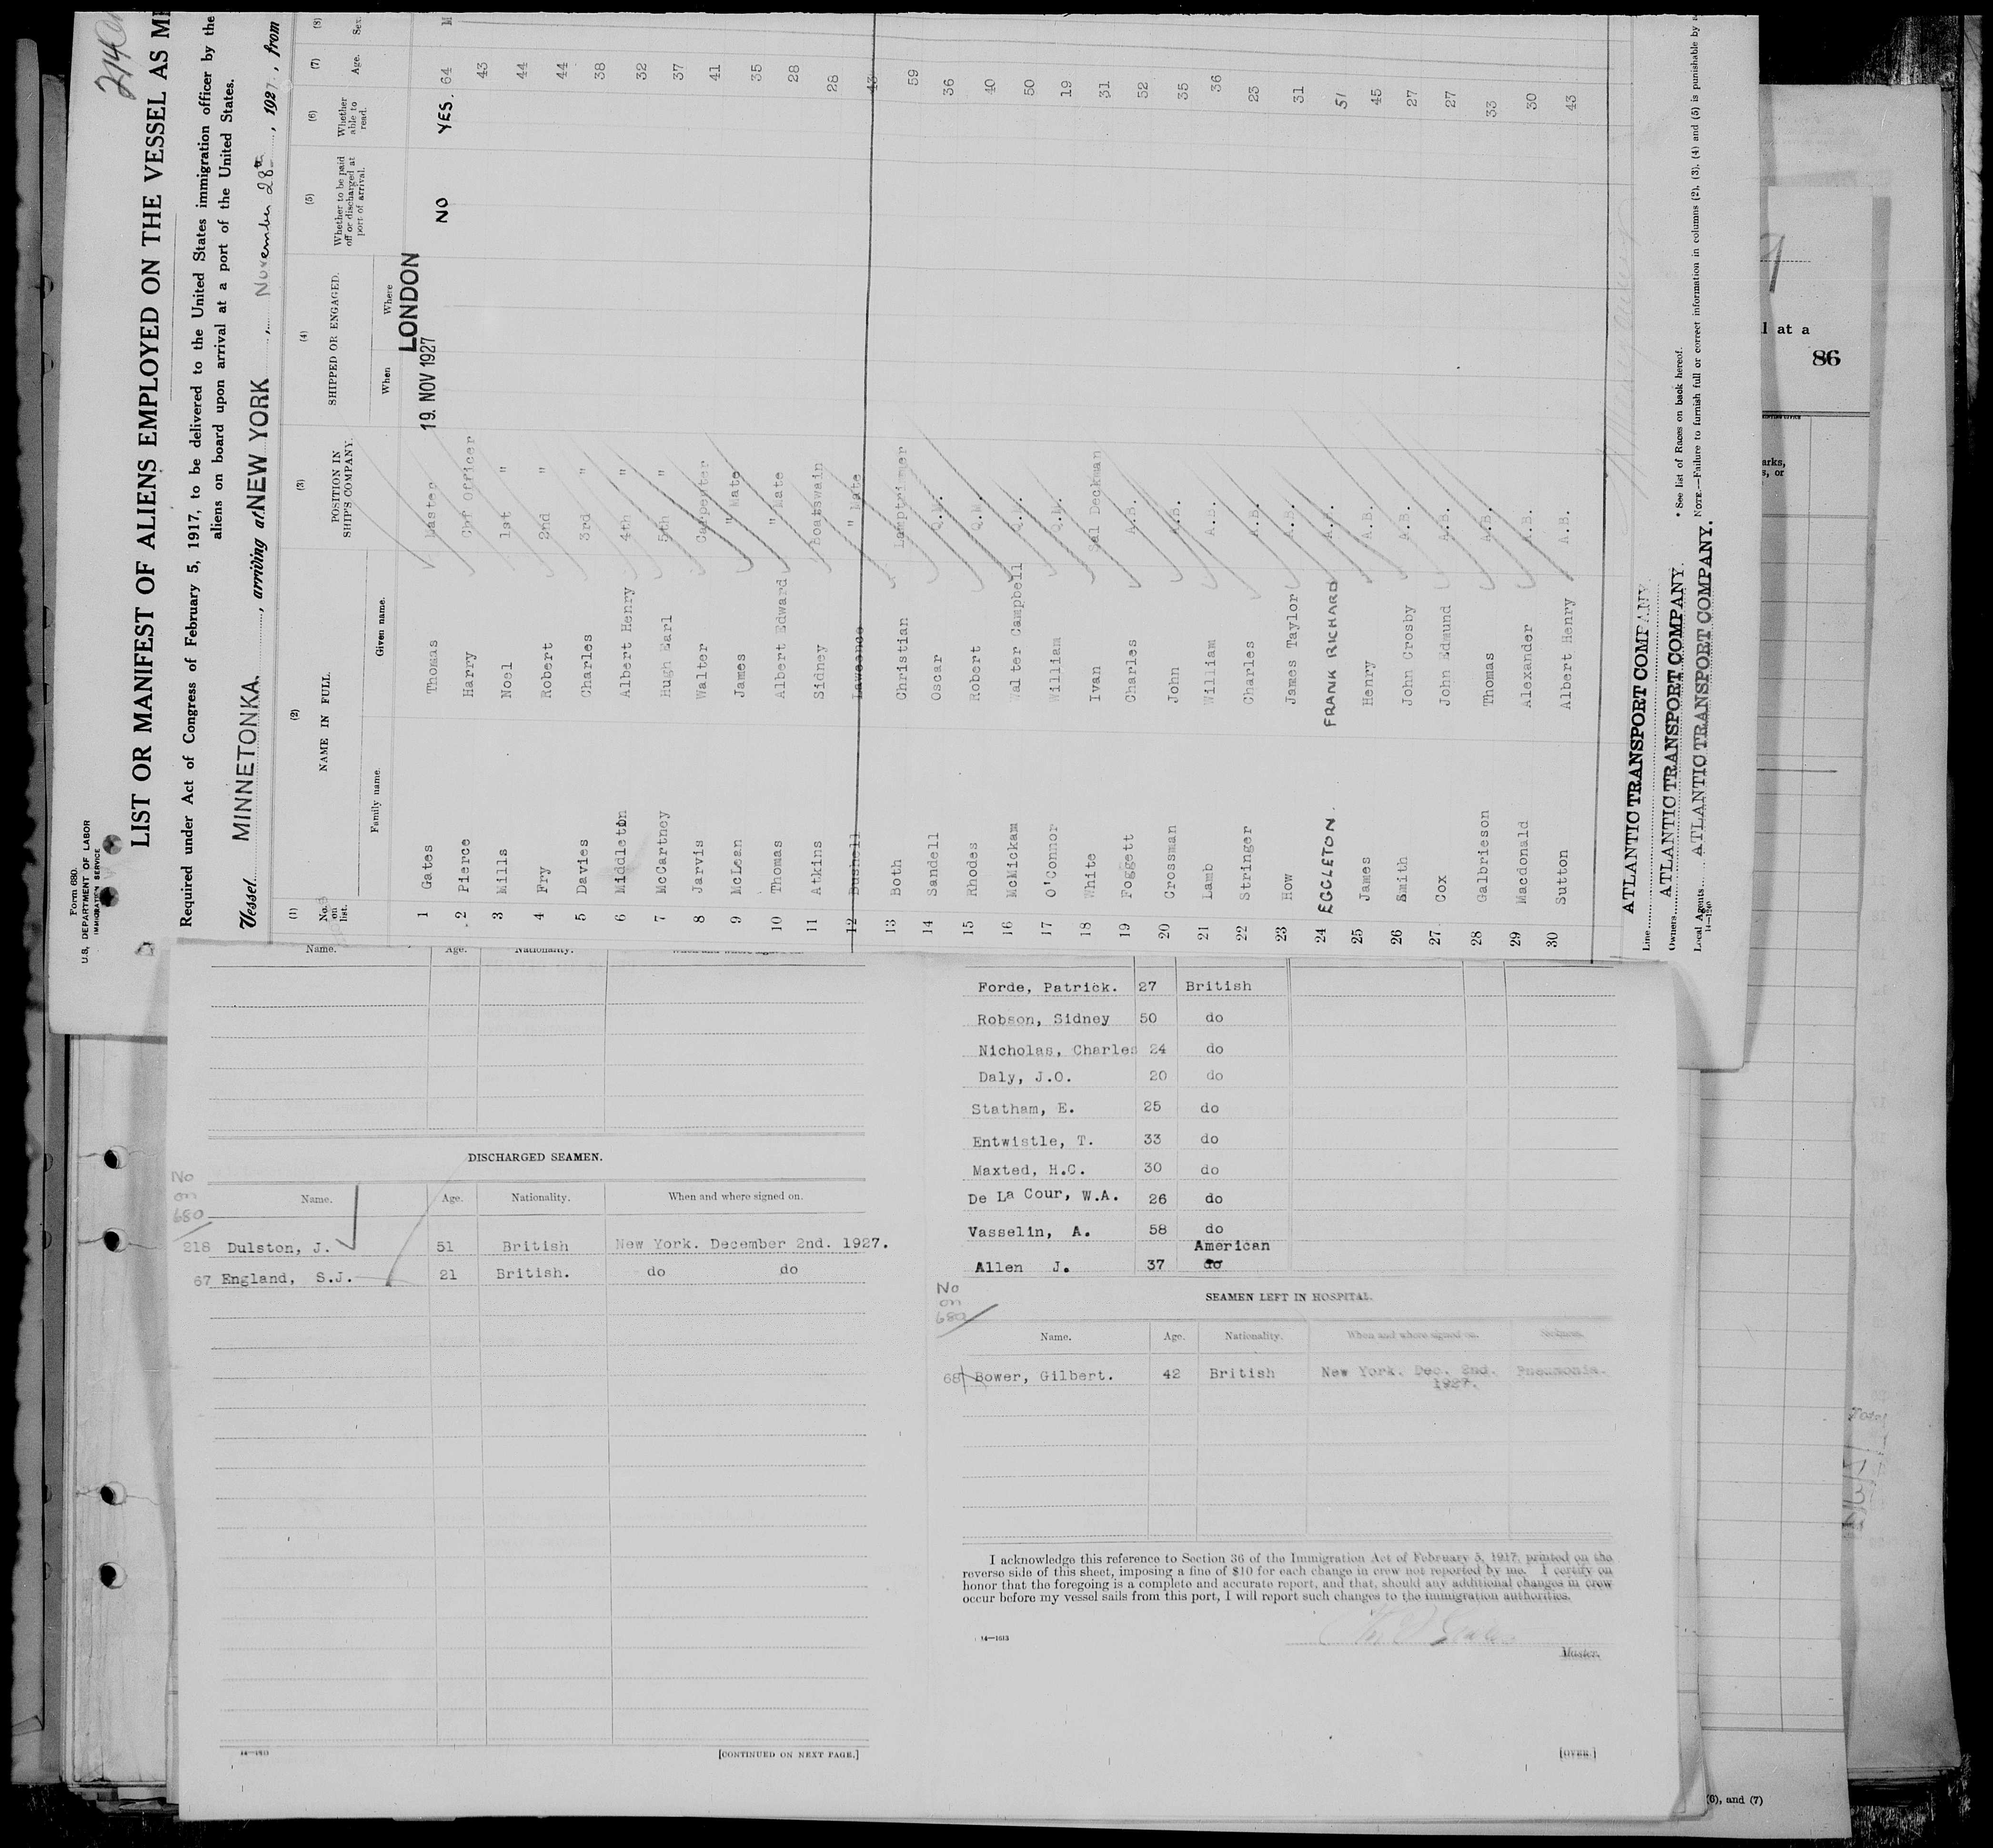 214
Form 680.
U.S. DEPARTMENT OF LABOR
IMMIGRATION SERVICE
LIST OR MANIFEST OF ALIENS EMPLOYED ON THE VESSEL AS
Required under Act of Congress of February 5, 1917, to be delivered to the United States immigration officer by the
aliens on board upon arrival at a port of the United States.
Vessel MINNETONKA, arriving at NEW YORK, November 28th, 1927, from
(1) (2) (3) (4) (5) (6) (7) (8)
No. on list. NAME IN FULL. POSITION IN SHIP'S COMPANY. SHIPPED OR ENGAGED. Whether to be paid off or discharged at port of arrival. Whether able to read. Age. Sex.
Family name. Given name. When Where
19. NOV 1927 LONDON
1 Gates Thomas Master NO YES. 64 M
2 Pierce Harry Chf Officer 43
3 Mills Noel 1st " 44
4 Fry Robert 2nd " 44
5 Davies Charles 3rd " 38
6 Middleton Albert Henry 4th " 32
7 McCartney Hugh Earl 5th " 37
8 Jarvis Walter Carpenter 41
9 McLean James " Mate 35
10 Thomas Albert Edward " Mate 28
11 Atkins Sidney Boatswain 28
12 Bushell Lawrence " Mate 43
13 Both Christian Lamptrimmer 59
14 Sandell Oscar Q.M. 36
15 Rhodes Robert Q.M. 40
16 McMickam Walter Campbell Q.M. 50
17 O'Connor William Q.M. 19
18 White Ivan Sal Deckman 31
19 Foggett Charles A.B. 52
20 Crossman John A.B. 35
21 Lamb William A.B. 36
22 Stringer Charles A.B. 23
23 How James Taylor A.B. 31
24 EGGLETON. FRANK RICHARD A.B. 51
25 James Henry A.B. 45
26 Smith John Crosby A.B. 27
27 Cox John Edmund A.B. 27
28 Galbrieson Thomas A.B. 33
29 Macdonald Alexander A.B. 30
30 Sutton Albert Henry A.B. 43
Line ATLANTIC TRANSPORT COMPANY.
Owners ATLANTIC TRANSPORT COMPANY.
Local Agents ATLANTIC TRANSPORT COMPANY.
14—1240
* See list of Races on back hereof.
NOTE.—Failure to furnish full or correct information in columns (2), (3), (4) and (5) is punishable by
l at a
86
arks,
s, or
Name. Age. Nationality. When and where signed on.
DISCHARGED SEAMEN.
No
on
680
Name. Age. Nationality. When and where signed on.
218 Dulston, J. 51 British New York. December 2nd. 1927.
67 England, S.J. 21 British. do do
14—1613
[CONTINUED ON NEXT PAGE.]
Forde, Patrick. 27 British
Robson, Sidney 50 do
Nicholas, Charles 24 do
Daly, J.O. 20 do
Statham, E. 25 do
Entwistle, T. 33 do
Maxted, H.C. 30 do
De La Cour, W.A. 26 do
Vasselin, A. 58 do
American
Allen J. 37 do
No
on
680
SEAMEN LEFT IN HOSPITAL.
Name. Age. Nationality. When and where signed on. Sickness.
68 Bower, Gilbert. 42 British New York. Dec. 2nd. Pneumonia.
1927.
I acknowledge this reference to Section 36 of the Immigration Act of February 5, 1917, printed on the
reverse side of this sheet, imposing a fine of $10 for each change in crew not reported by me. I certify on
honor that the foregoing is a complete and accurate report, and that, should any additional changes in crew
occur before my vessel sails from this port, I will report such changes to the immigration authorities.
14—1613
Master.
[OVER.]
(6), and (7)